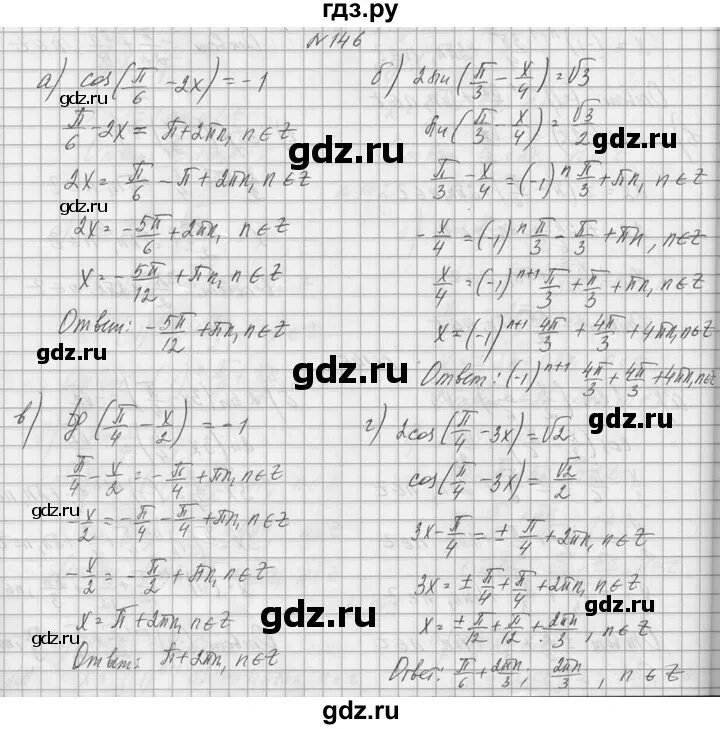 гдз.ру
N 146
а) cos(π/6 - 2x) = -1
π/6 - 2x = π + 2πn, n∈Z
2x = π/6 - π + 2πn, n∈Z
2x = -5π/6 + 2πn, n∈Z
x = -5π/12 + πn, n∈Z
Ответ: -5π/12 + πn, n∈Z
б) 2sin(π/3 - x/4) = √3
sin(π/3 - x/4) = √3/2
π/3 - x/4 = (-1)^n π/3 + πn, n∈Z
-x/4 = (-1)^n π/3 - π/3 + πn, n∈Z
x/4 = (-1)^(n+1) π/3 + π/3 + πn, n∈Z
x = (-1)^(n+1) 4π/3 + 4π/3 + 4πn, n∈Z
Ответ: (-1)^(n+1) 4π/3 + 4π/3 + 4πn, n∈Z
в) tg(π/4 - x/2) = -1
π/4 - x/2 = -π/4 + πn, n∈Z
-x/2 = -π/4 - π/4 + πn, n∈Z
-x/2 = -π/2 + πn, n∈Z
x = π + 2πn, n∈Z
Ответ: π + 2πn, n∈Z
г) 2cos(π/4 - 3x) = √2
cos(π/4 - 3x) = √2/2
3x - π/4 = ± π/4 + 2πn, n∈Z
3x = ± π/4 + π/4 + 2πn, n∈Z
x = ± π/12 + π/12 + 2πn/3, n∈Z
Ответ: π/6 + 2πn/3, 2πn/3, n∈Z
gdz.ru
gdz.ru
gdz.ru
gdz.ru
gdz.ru
gdz.ru
gdz.ru
gdz.ru
gdz.ru
gdz.ru
gdz.ru
gdz.ru
gdz.ru